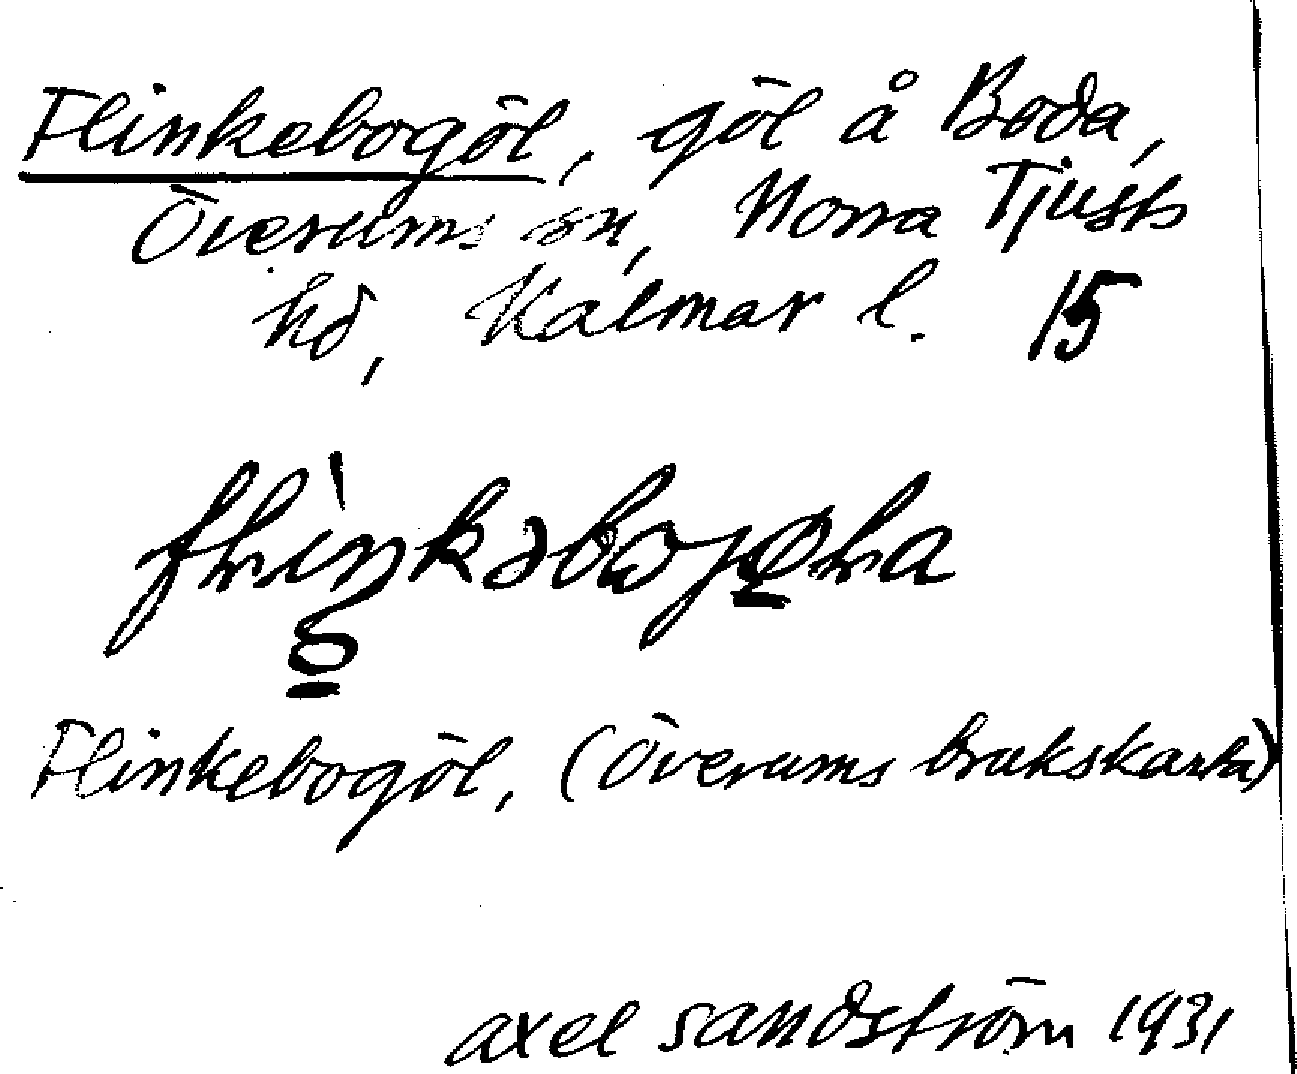 Flinkebogöl, göl å Boda,
Överums sn, Norra Tjusts
hd, Kalmar l. 15
Flinkebogöl, (Överums brukskarta)
axel sandström 1931